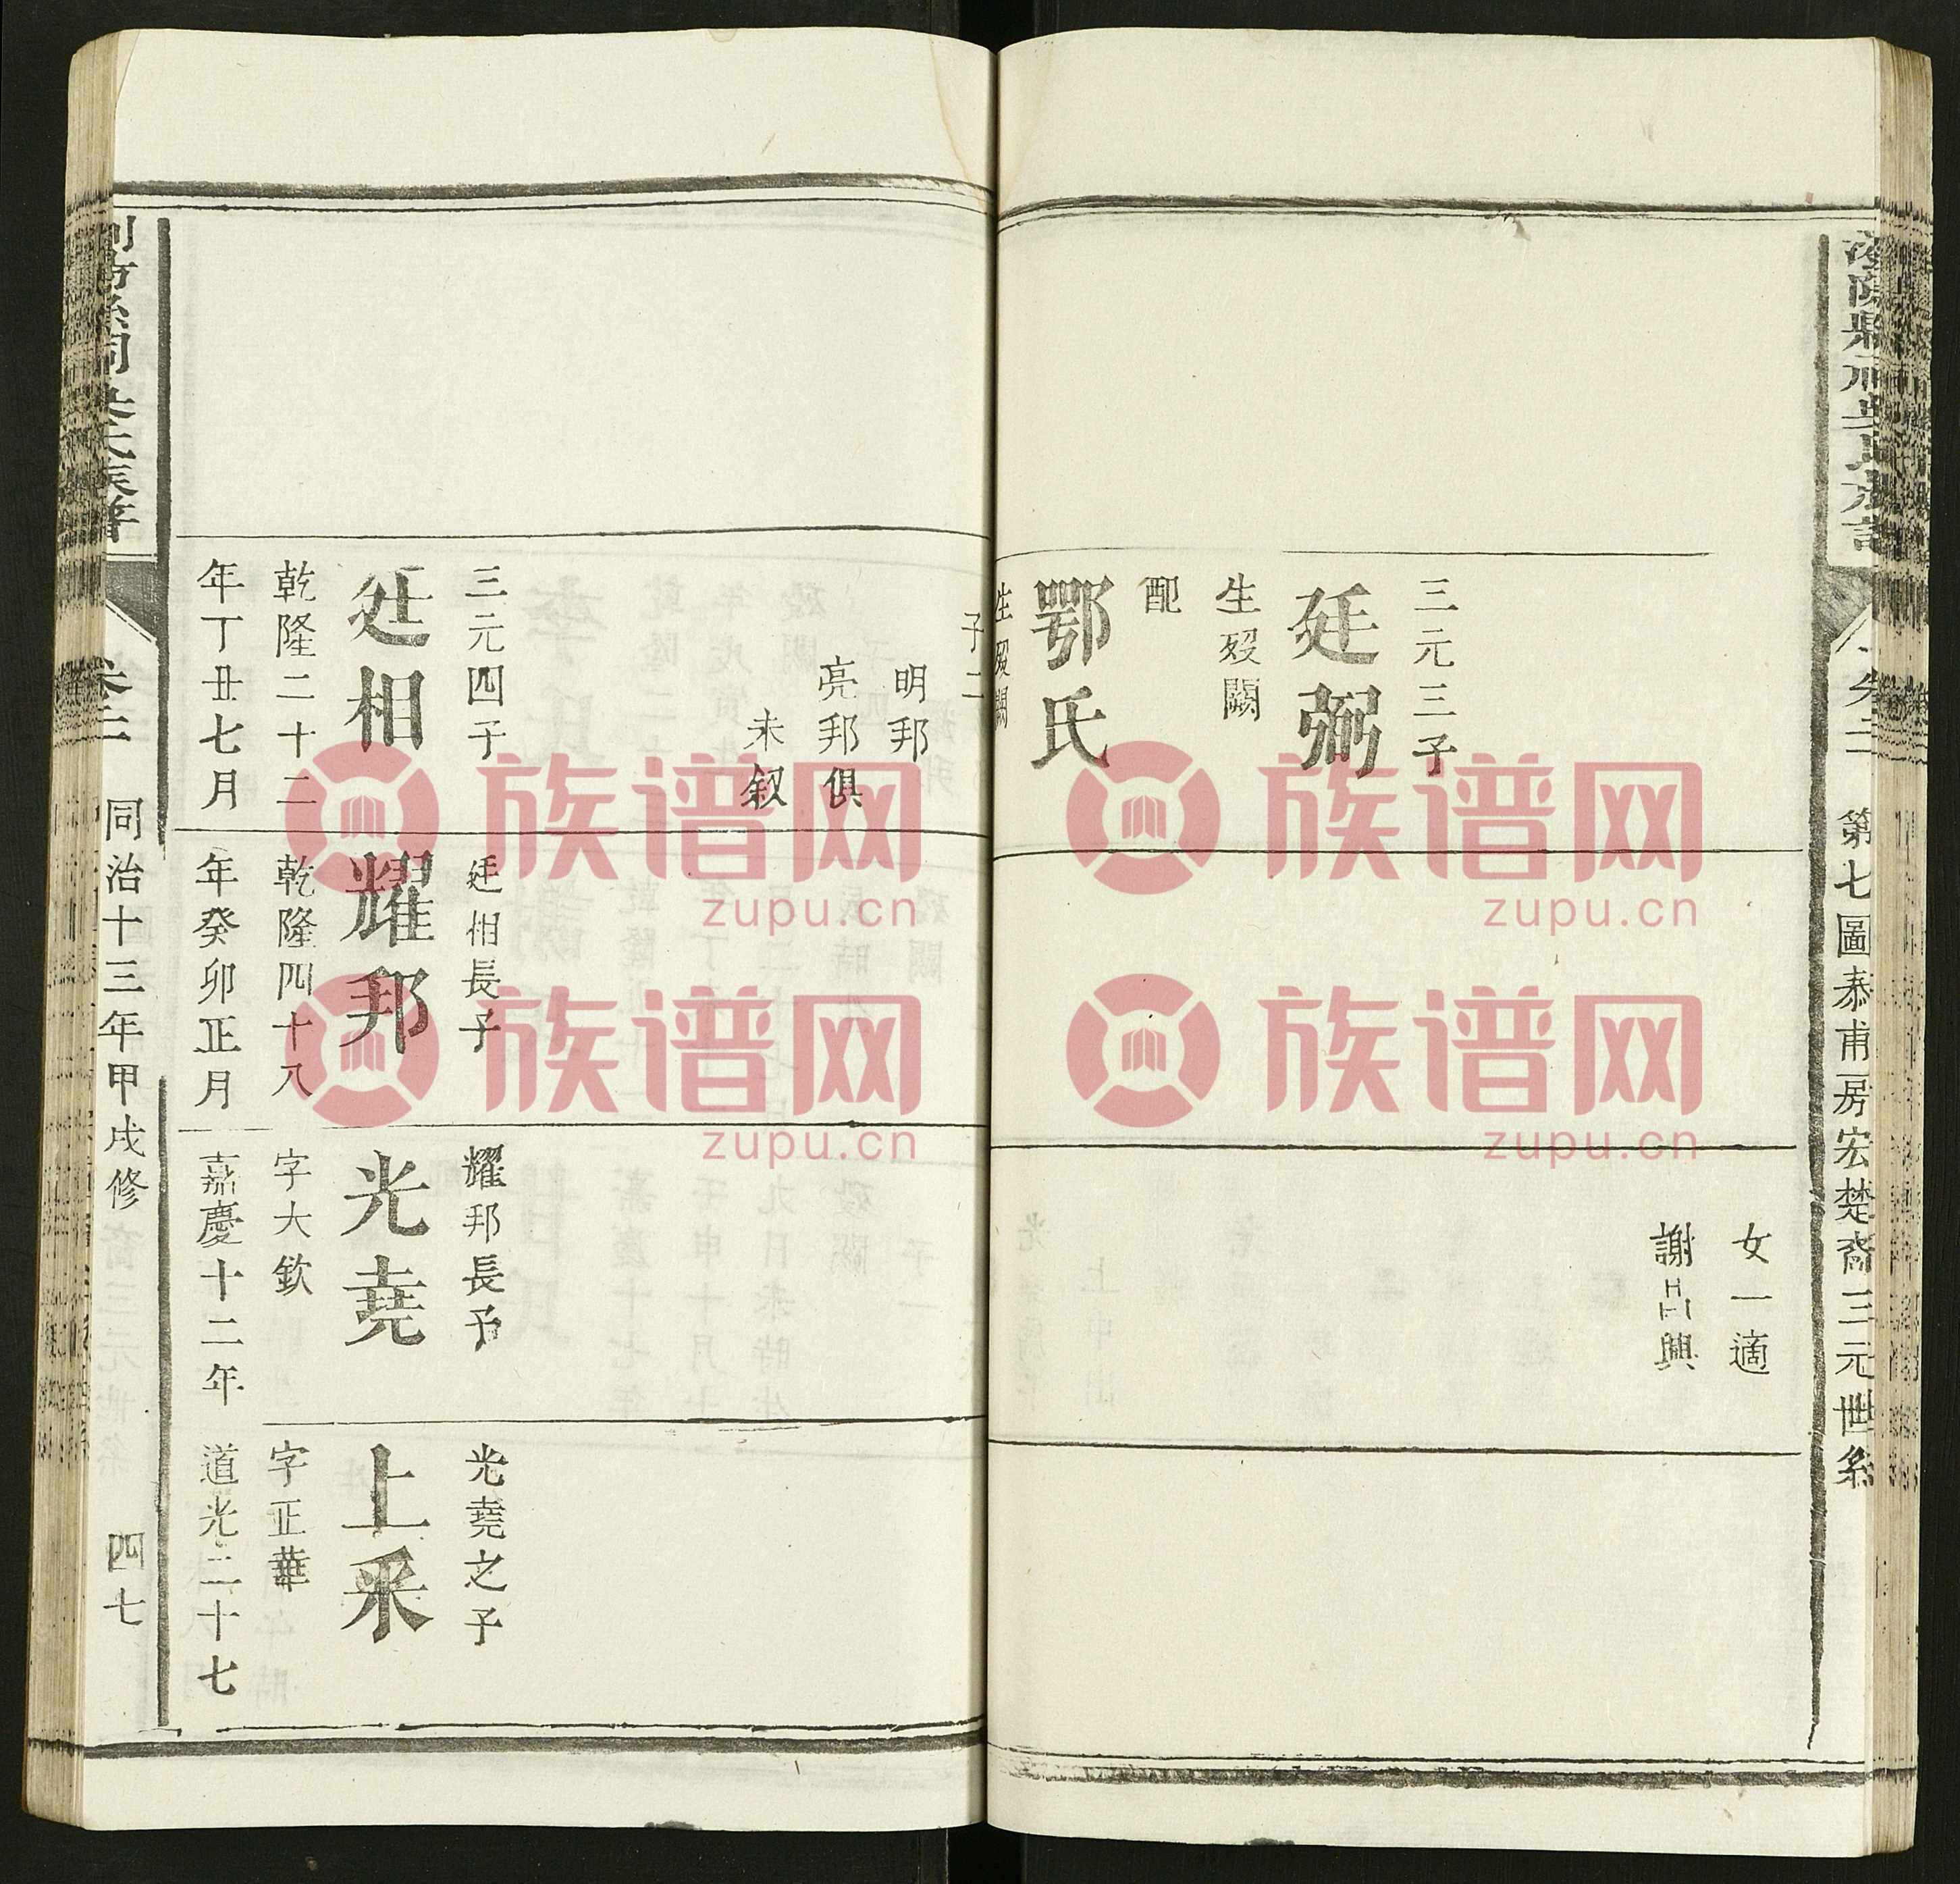 卷二
第七圖泰甫房宏楚裔三元世系
女一適
謝昌興
三元三子
廷弼
生歿闕
配
鄂氏
生歿闕
子二
明邦
亮邦俱
未叙
三元四子
廷相
乾隆二十二
年丁丑七月
廷相長子
耀邦
乾隆四十八
年癸卯正月
耀邦長子
光堯
字大欽
嘉慶十二年
光堯之子
上采
字正華
道光二十七
卷二
同治十三年甲戌修
四七
族谱网
zupu.cn
族谱网
zupu.cn
族谱网
zupu.cn
族谱网
zupu.cn